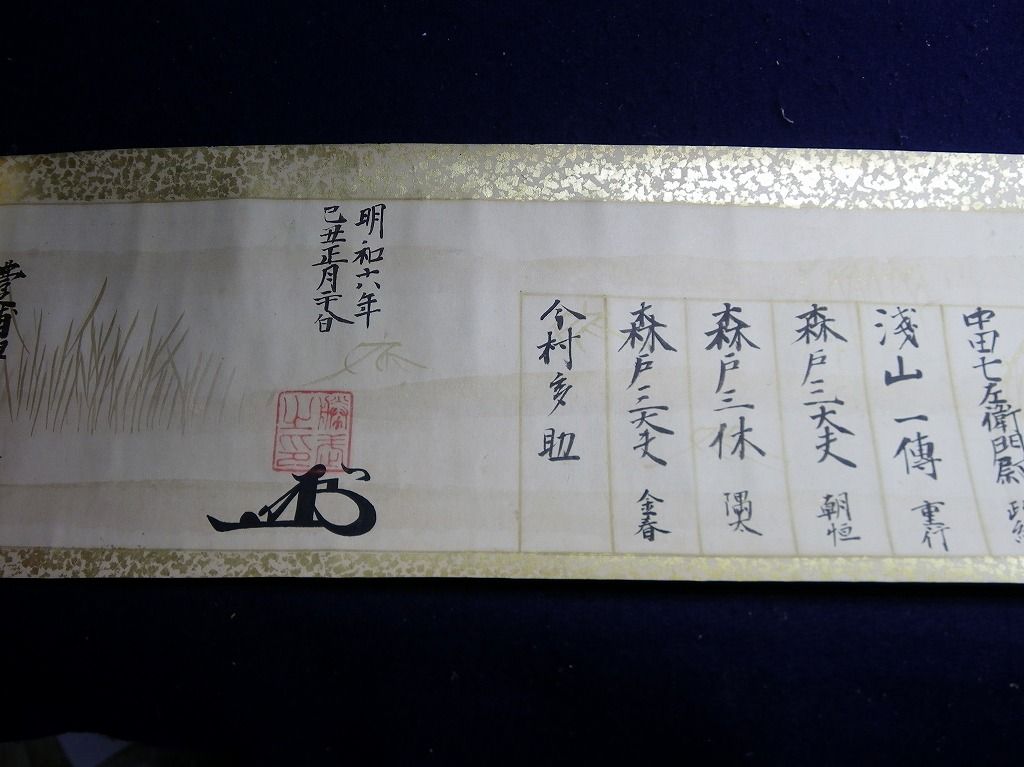 中田七左衛門尉 政経
淺山一傳 重行
森戸三太夫 朝恒
森戸三休 偶太
森戸三太夫 金春
今村多助
明和六年
己丑正月